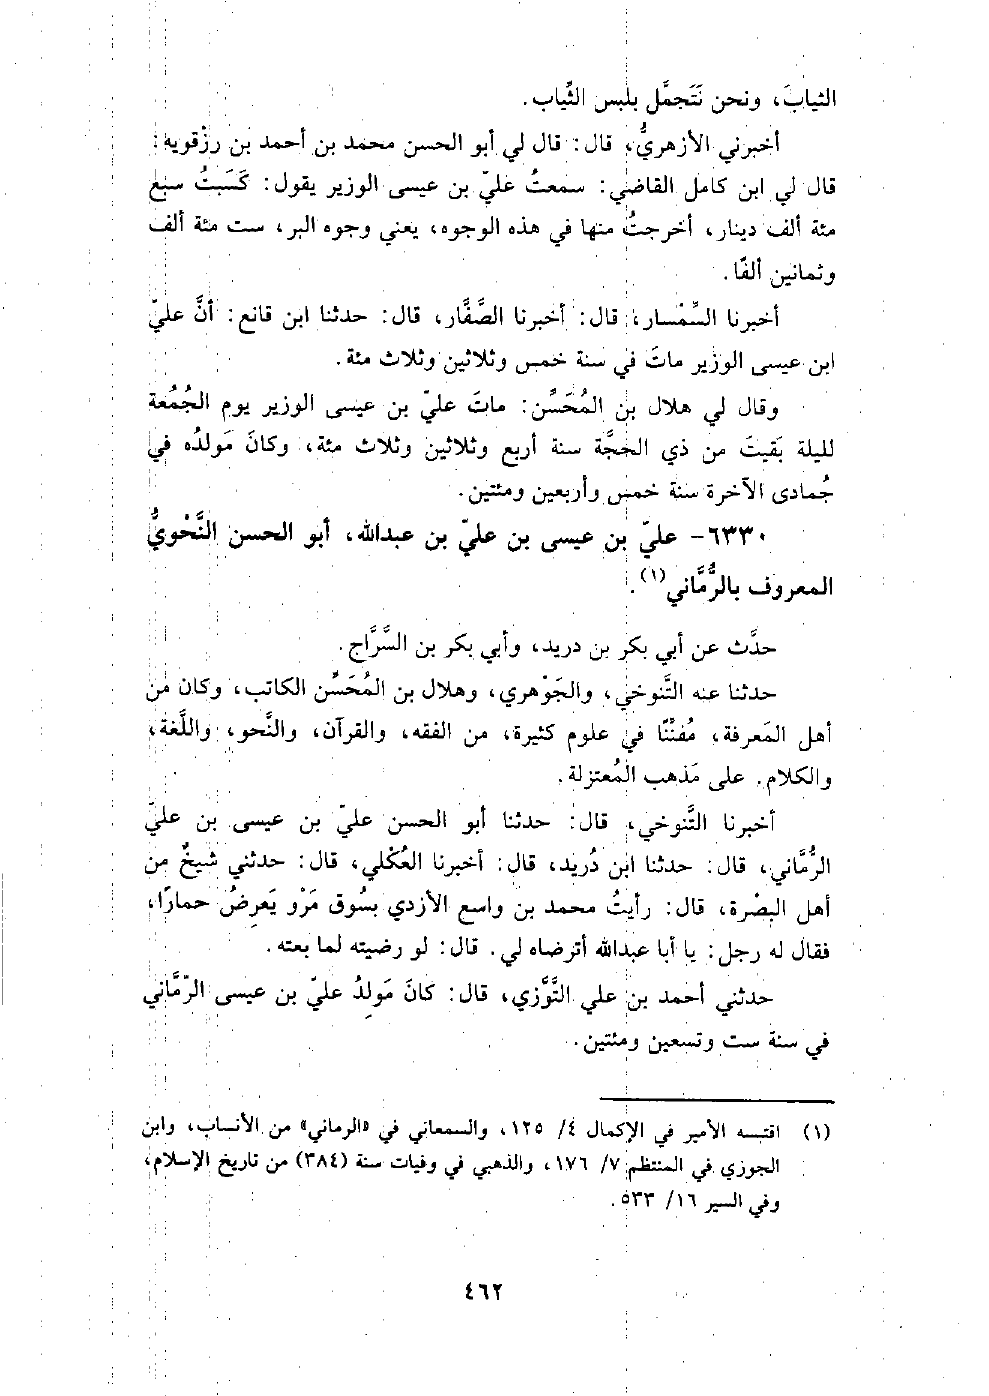 الثيابَ، ونحن نَتَجمَّل بلبس الثِّياب.
أخبرني الأزهريُّ، قال: قال لي أبو الحسن محمد بن أحمد بن رزْقويه:
قال لي ابن كامل القاضي: سمعتُ عليّ بن عيسى الوزير يقول: كَسَبتُ سبع
مئة ألف دينار، أخرجتُ منها في هذه الوجوه، يعني وجوه البر، ست مئة ألف
وثمانين ألفًا.
أخبرنا السِّمْسار، قال: أخبرنا الصَّفَّار، قال: حدثنا ابن قانع: أنَّ عليّ
ابن عيسى الوزير ماتَ في سنة خمس وثلاثين وثلاث مئة.
وقال لي هلال بن المُحَسِّن: ماتَ عليّ بن عيسى الوزير يوم الجُمُعة
لليلة بَقيتَ من ذي الحجَّة سنة أربع وثلاثين وثلاث مئة، وكانَ مَولدُه في
جُمادى الآخرة سنة خمس وأربعين ومئتين.
٦٣٣٠- عليّ بن عيسى بن عليّ بن عبدالله، أبو الحسن النَّحْويُّ
المعروف بالرُّمَّاني(١).
حدَّث عن أبي بكر بن دريد، وأبي بكر بن السَّرَّاج.
حدثنا عنه التَّنوخي، والجَوْهري، وهلال بن المُحَسِّن الكاتب، وكان من
أهل المَعرفة، مُفتنًّا في علوم كثيرة، من الفقه، والقرآن، والنَّحو، واللَّغة،
والكلام. على مَذهب المُعتزلة.
أخبرنا التَّنوخي، قال: حدثنا أبو الحسن عليّ بن عيسى بن علي
الرُّمَّاني، قال: حدثنا ابن دُريد، قال: أخبرنا العُكْلي، قال: حدثني شيخٌ من
أهل البصْرة، قال: رأيتُ محمد بن واسع الأزدي بسُوق مَرْو يَعرِضُ حمارًا،
فقال له رجل: يا أبا عبدالله أترضاه لي. قال: لو رضيته لما بعته.
حدثني أحمد بن علي التَّوَّزي، قال: كانَ مَولِدُ عليّ بن عيسى الرّمَّاني
في سنة ست وتسعين ومئتين.
(١) اقتبسه الأمير في الإكمال ٤/ ١٢٥، والسمعاني في «الرماني» من الأنساب، وابن
الجوزي في المنتظم ٧/ ١٧٦، والذهبي في وفيات سنة (٣٨٤) من تاريخ الإسلام،
وفي السير ١٦/ ٥٣٣.
٤٦٢